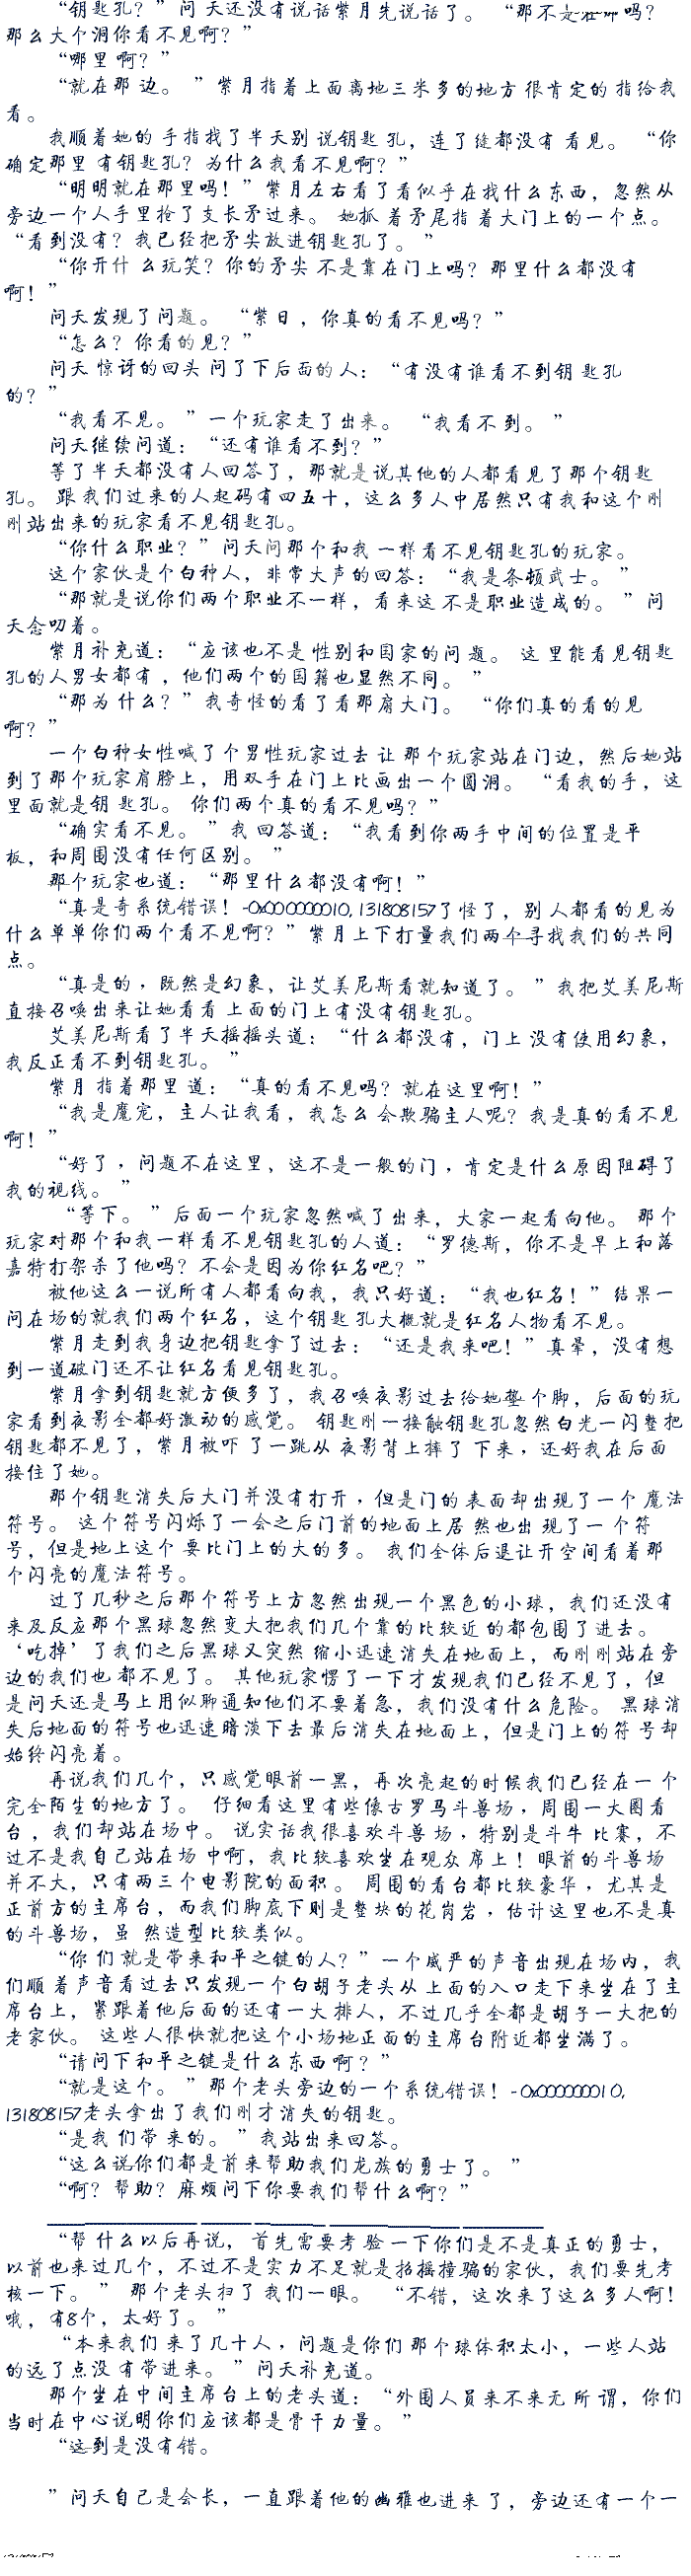 “钥匙孔？”问天还没有说话紫月先说话了。“那不是在那吗？
那么大个洞你看不见啊？”
“哪里啊？”
“就在那边。”紫月指着上面离地三米多的地方很肯定的指给我
看。
我顺着她的手指找了半天别说钥匙孔，连了缝都没有看见。“你
确定那里有钥匙孔？为什么我看不见啊？”
“明明就在那里吗！”紫月左右看了看似乎在找什么东西，忽然从
旁边一个人手里抢了支长矛过来。她抓着矛尾指着大门上的一个点。
“看到没有？我已经把矛尖放进钥匙孔了。”
“你开什么玩笑？你的矛尖不是靠在门上吗？那里什么都没有
啊！”
问天发现了问题。“紫日，你真的看不见吗？”
“怎么？你看的见？”
问天惊讶的回头问了下后面的人：“有没有谁看不到钥匙孔
的？”
“我看不见。”一个玩家走了出来。“我看不到。”
问天继续问道：“还有谁看不到？”
等了半天都没有人回答了，那就是说其他的人都看见了那个钥匙
孔。跟我们过来的人起码有四五十，这么多人中居然只有我和这个刚
刚站出来的玩家看不见钥匙孔。
“你什么职业？”问天问那个和我一样看不见钥匙孔的玩家。
这个家伙是个白种人，非常大声的回答：“我是条顿武士。”
“那就是说你们两个职业不一样，看来这不是职业造成的。”问
天念叨着。
紫月补充道：“应该也不是性别和国家的问题。这里能看见钥匙
孔的人男女都有，他们两个的国籍也显然不同。”
“那为什么？”我奇怪的看了看那扇大门。“你们真的看的见
啊？”
一个白种女性喊了个男性玩家过去让那个玩家站在门边，然后她站
到了那个玩家肩膀上，用双手在门上比画出一个圆洞。“看我的手，这
里面就是钥匙孔。你们两个真的看不见吗？”
“确实看不见。”我回答道：“我看到你两手中间的位置是平
板，和周围没有任何区别。”
那个玩家也道：“那里什么都没有啊！”
“真是奇系统错误！-0x000000010,131808157了怪了，别人都看的见为
什么单单你们两个看不见啊？”紫月上下打量我们两个寻找我们的共同
点。
“真是的，既然是幻象，让艾美尼斯看就知道了。”我把艾美尼斯
直接召唤出来让她看看上面的门上有没有钥匙孔。
艾美尼斯看了半天摇摇头道：“什么都没有，门上没有使用幻象，
我反正看不到钥匙孔。”
紫月指着那里道：“真的看不见吗？就在这里啊！”
“我是魔宠，主人让我看，我怎么会欺骗主人呢？我是真的看不见
啊！”
“好了，问题不在这里，这不是一般的门，肯定是什么原因阻碍了
我的视线。”
“等下。”后面一个玩家忽然喊了出来，大家一起看向他。那个
玩家对那个和我一样看不见钥匙孔的人道：“罗德斯，你不是早上和落
嘉特打架杀了他吗？不会是因为你红名吧？”
被他这么一说所有人都看向我，我只好道：“我也红名！”结果一
问在场的就我们两个红名，这个钥匙孔大概就是红名人物看不见。
紫月走到我身边把钥匙拿了过去：“还是我来吧！”真晕，没有想
到一道破门还不让红名看见钥匙孔。
紫月拿到钥匙就方便多了，我召唤夜影过去给她垫个脚，后面的玩
家看到夜影全都好激动的感觉。钥匙刚一接触钥匙孔忽然白光一闪整把
钥匙都不见了，紫月被吓了一跳从夜影背上摔了下来，还好我在后面
接住了她。
那个钥匙消失后大门并没有打开，但是门的表面却出现了一个魔法
符号。这个符号闪烁了一会之后门前的地面上居然也出现了一个符
号，但是地上这个要比门上的大的多。我们全体后退让开空间看着那
个闪亮的魔法符号。
过了几秒之后那个符号上方忽然出现一个黑色的小球，我们还没有
来及反应那个黑球忽然变大把我们几个靠的比较近的都包围了进去。
‘吃掉’了我们之后黑球又突然缩小迅速消失在地面上，而刚刚站在旁
边的我们也都不见了。其他玩家愣了一下才发现我们已经不见了，但
是问天还是马上用似聊通知他们不要着急，我们没有什么危险。黑球消
失后地面的符号也迅速暗淡下去最后消失在地面上，但是门上的符号却
始终闪亮着。
再说我们几个，只感觉眼前一黑，再次亮起的时候我们已经在一个
完全陌生的地方了。仔细看这里有些像古罗马斗兽场，周围一大圈看
台，我们却站在场中。说实话我很喜欢斗兽场，特别是斗牛比赛，不
过不是我自己站在场中啊，我比较喜欢坐在观众席上！眼前的斗兽场
并不大，只有两三个电影院的面积。周围的看台都比较豪华，尤其是
正前方的主席台，而我们脚底下则是整块的花岗岩，估计这里也不是真
的斗兽场，虽然造型比较类似。
“你们就是带来和平之键的人？”一个威严的声音出现在场内，我
们顺着声音看过去只发现一个白胡子老头从上面的入口走下来坐在了主
席台上，紧跟着他后面的还有一大排人，不过几乎全都是胡子一大把的
老家伙。这些人很快就把这个小场地正面的主席台附近都坐满了。
“请问下和平之键是什么东西啊？”
“就是这个。”那个老头旁边的一个系统错误！-0x000000010,
131808157老头拿出了我们刚才消失的钥匙。
“是我们带来的。”我站出来回答。
“这么说你们都是前来帮助我们龙族的勇士了。”
“啊？帮助？麻烦问下你要我们帮什么啊？”
“帮什么以后再说，首先需要考验一下你们是不是真正的勇士，
以前也来过几个，不过不是实力不足就是招摇撞骗的家伙，我们要先考
核一下。”那个老头扫了我们一眼。“不错，这次来了这么多人啊！
哦，有8个，太好了。”
“本来我们来了几十人，问题是你们那个球体积太小，一些人站
的远了点没有带进来。”问天补充道。
那个坐在中间主席台上的老头道：“外围人员来不来无所谓，你们
当时在中心说明你们应该都是骨干力量。”
“这到是没有错。
”问天自己是会长，一直跟着他的幽雅也进来了，旁边还有一个一